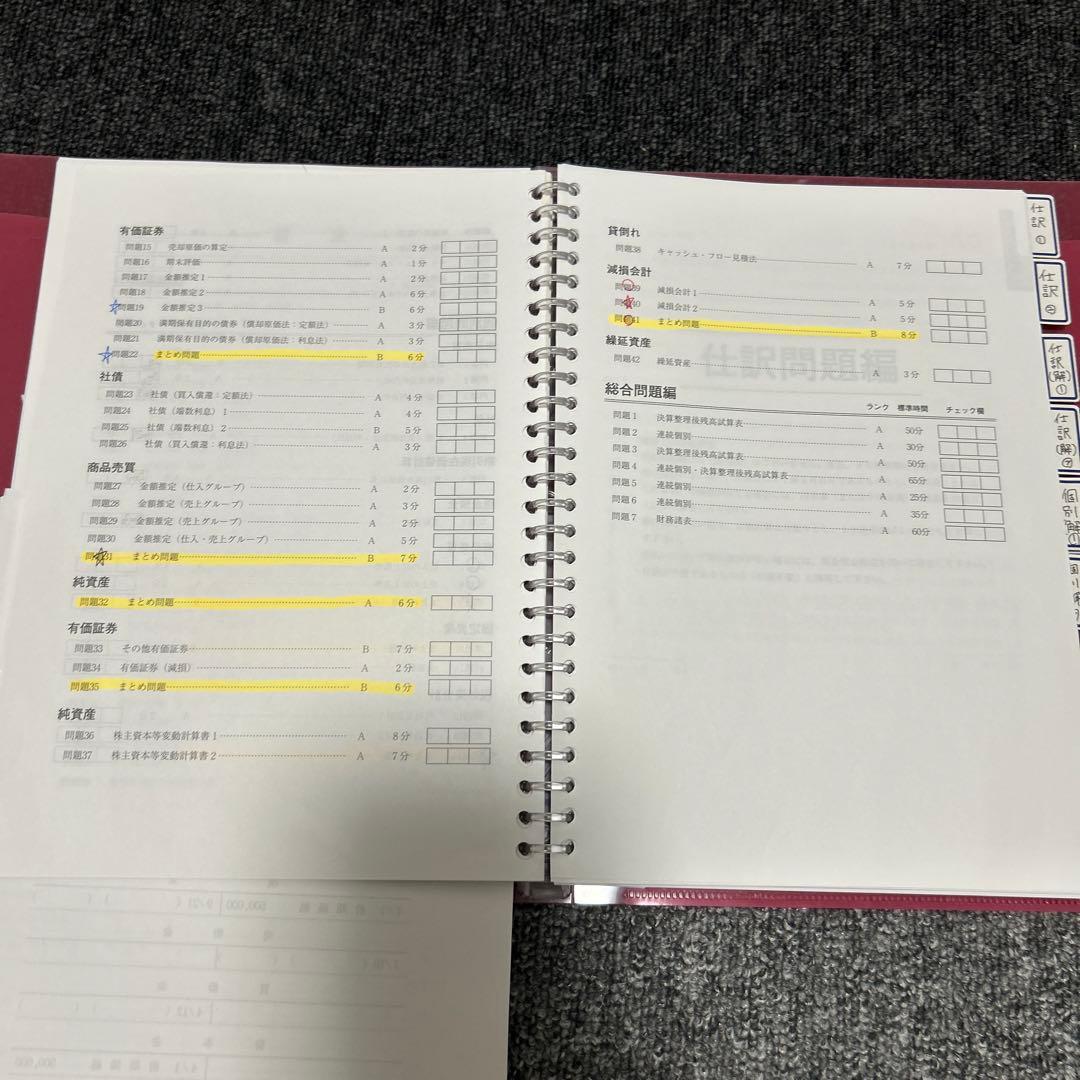 有価証券
問題15 売却原価の算定 A 2分
問題16 期末評価 A 1分
問題17 金額推定1 A 2分
問題18 金額推定2 A 6分
問題19 金額推定3 B 6分
問題20 満期保有目的の債券（償却原価法：定額法） A 3分
問題21 満期保有目的の債券（償却原価法：利息法） A 3分
問題22 まとめ問題 B 6分
社債
問題23 社債（買入償還：定額法） A 4分
問題24 社債（端数利息）1 A 4分
問題25 社債（端数利息）2 B 5分
問題26 社債（買入償還：利息法） A 3分
商品売買
問題27 金額推定（仕入グループ） A 2分
問題28 金額推定（売上グループ） A 3分
問題29 金額推定（売上グループ） A 2分
問題30 金額推定（仕入・売上グループ） A 5分
問題31 まとめ問題 B 7分
純資産
問題32 まとめ問題 A 6分
有価証券
問題33 その他有価証券 B 7分
問題34 有価証券（減損） A 2分
問題35 まとめ問題 B 6分
純資産
問題36 株主資本等変動計算書1 A 8分
問題37 株主資本等変動計算書2 A 7分
貸倒れ
問題38 キャッシュ・フロー見積法 A 7分
減損会計
問題39 減損会計1 A 5分
問題40 減損会計2 A 5分
問題41 まとめ問題 B 8分
繰延資産
問題42 繰延資産 A 3分
総合問題編
ランク 標準時間 チェック欄
問題1 決算整理後残高試算表 A 50分
問題2 連続個別 A 30分
問題3 決算整理後残高試算表 A 50分
問題4 連続個別・決算整理後残高試算表 A 65分
問題5 連続個別 A 25分
問題6 連続個別 A 35分
問題7 財務諸表 A 60分
仕訳①
仕訳②
仕訳(解)①
仕訳(解)②
個別解①